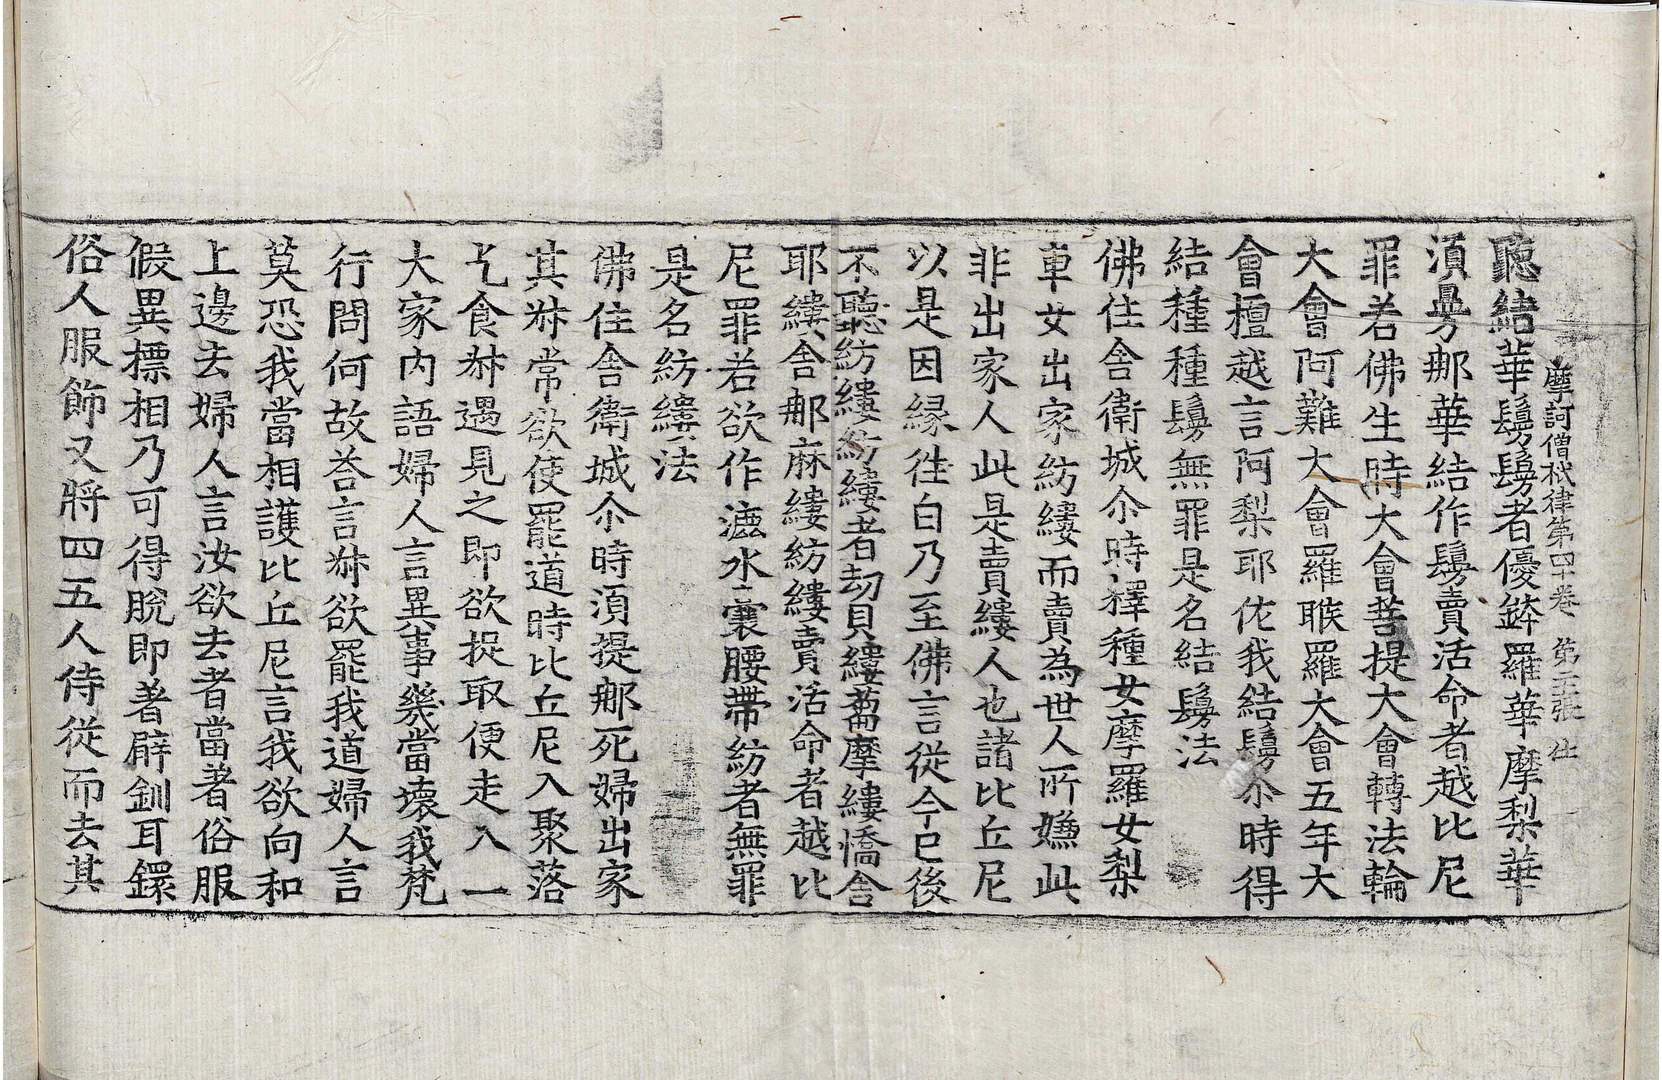 摩訶僧祇律第四十卷 第二張 仕
聽結華鬘鬘者優鉢羅華摩梨華
須曼那華結作鬘賣活命者越比尼
罪若佛生時大會菩提大會轉法輪
大會阿難大會羅睺羅大會五年大
會檀越言阿梨耶佐我結鬘尒時得
結種種鬘無罪是名結鬘法
佛住舍衛城尒時釋種女摩羅女梨
車女出家紡縷而賣為世人所嫌此
非出家人此是賣縷人也諸比丘尼
以是因緣往白乃至佛言從今已後
不聽紡縷紡縷者劫貝縷蒭摩縷憍舍
耶縷舍那麻縷紡縷賣活命者越比
尼罪若欲作漉水囊腰帶紡者無罪
是名紡縷法
佛住舍衛城尒時須提那死婦出家
其㭊常欲使罷道時比丘尼入聚落
乞食㭊遇見之即欲捉取便走入一
大家內語婦人言異事幾當壞我梵
行問何故荅言㭊欲罷我道婦人言
莫恐我當相護比丘尼言我欲向和
上邊去婦人言汝欲去者當著俗服
假異摽相乃可得脫即著辟釧耳鐶
俗人服飾又將四五人侍從而去其